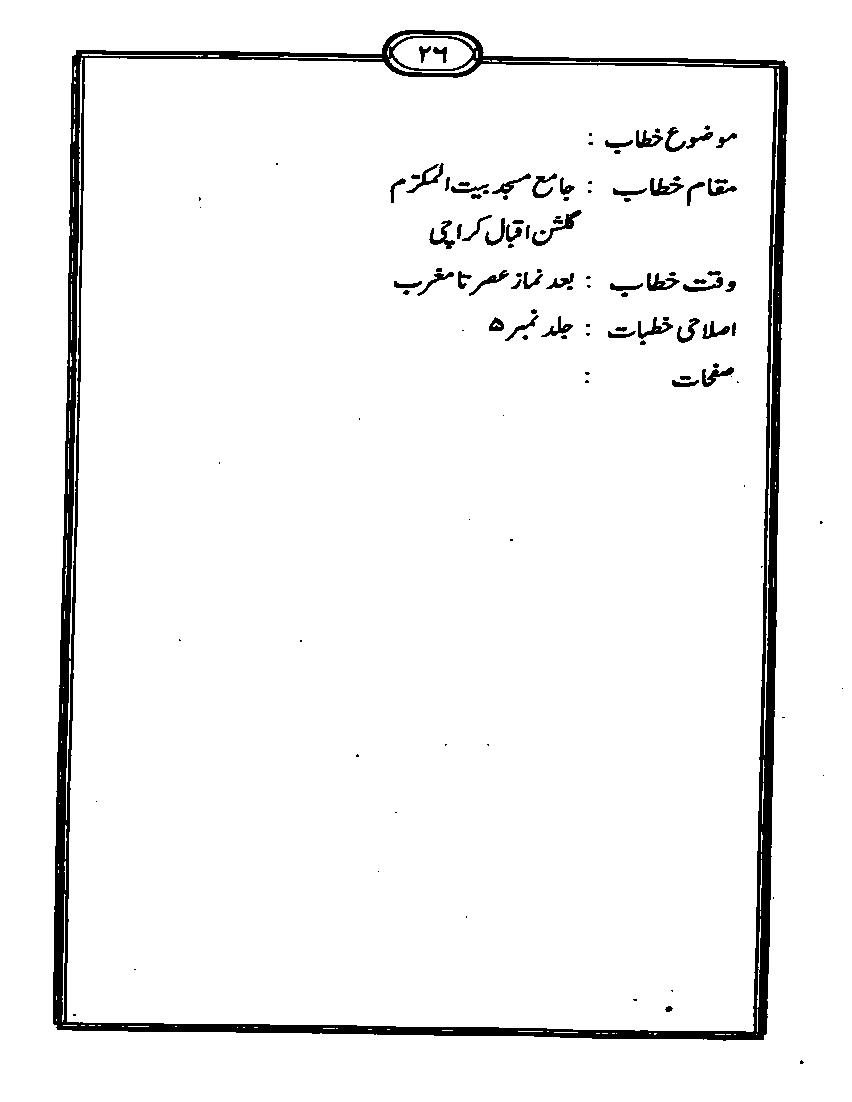 ۲۶
موضوع خطاب :
مقام خطاب : جامع مسجد بیت المکرّم
گلشن اقبال کراچی
وقت خطاب : بعد نماز عصر تا مغرب
اصلاحی خطبات : جلد نمبر ۵
صفحات :